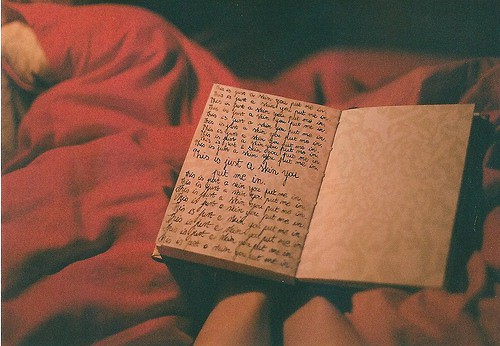 This is just a skin you put me in.
This is just a skin you put me in.
This is just a skin you put me in.
This is just a skin you put me in.
This is just a skin you put me in.
This is just a skin you put me in.
This is just a skin you put me in.
This is just a skin you put me in.
This is just a skin you put me in.
This is just a skin you
put me in.
This is just a skin you put me in.
This is just a skin you put me in.
This is just a skin you put me in.
This is just a skin you put me in.
This is just a skin you put me in.
This is just a skin you put me in.
This is just a skin you put me in.